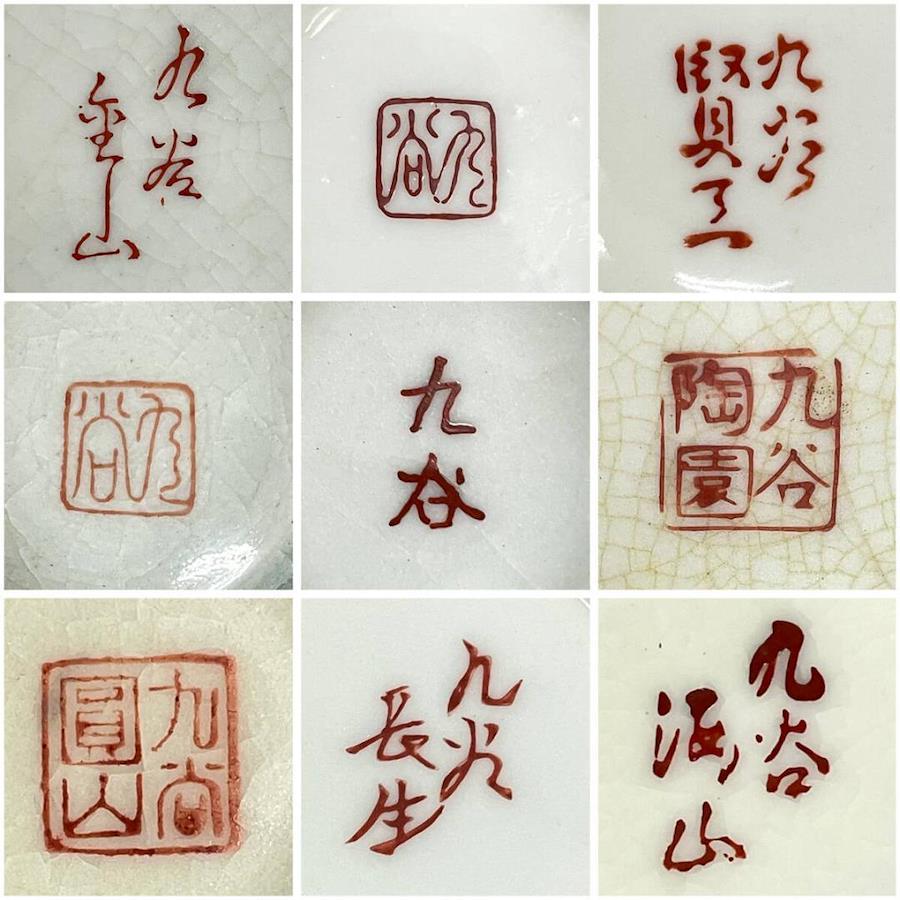 九谷
金山
九谷
九谷
賢
九谷
九谷
九谷
陶園
九谷
圓山
九谷
長生
九谷
山